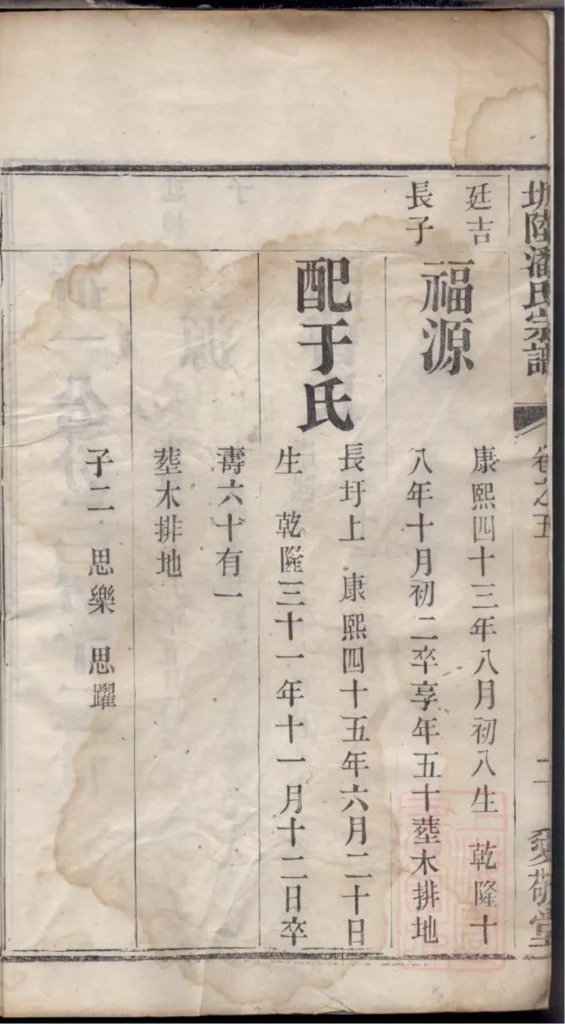 陸潘氏宗譜 卷之五 二 愛敬堂
廷吉
長子
福源
康熙四十三年八月初八生 乾隆十
八年十月初二卒享年五十塟木排地
配于氏
長圩上 康熙四十五年六月二十日
生 乾隆三十一年十一月十二日卒
壽六十有一
塟木排地
子二 思樂 思躍